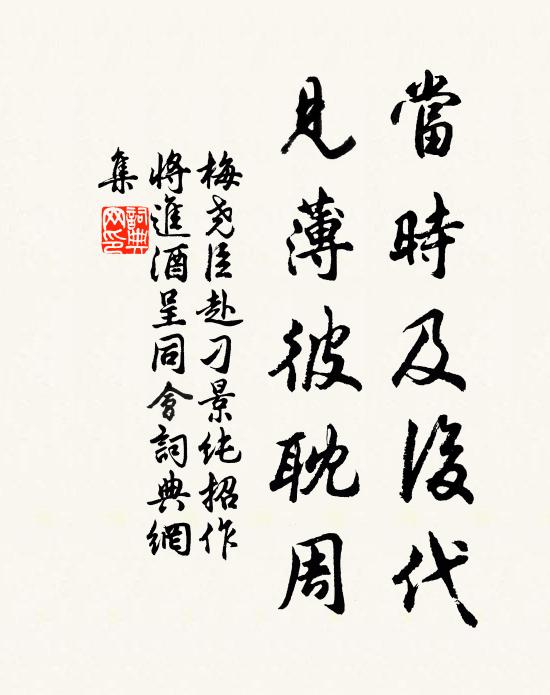 當時及後代
見薄彼耽周
梅堯臣赴刁景純招作
將進酒呈同會詞典網
集
詞典网印